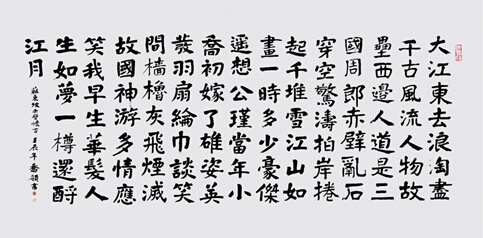 大江東去浪淘盡
千古風流人物故
壘西邊人道是三
國周郎赤壁亂石
穿空驚濤拍岸捲
起千堆雪江山如
畫一時多少豪傑
遥想公瑾當年小
喬初嫁了雄姿英
發羽扇綸巾談笑
間檣櫓灰飛煙滅
故國神游多情應
笑我早生華髮人
生如夢一樽還酹
江月
蘇東坡赤壁懷古